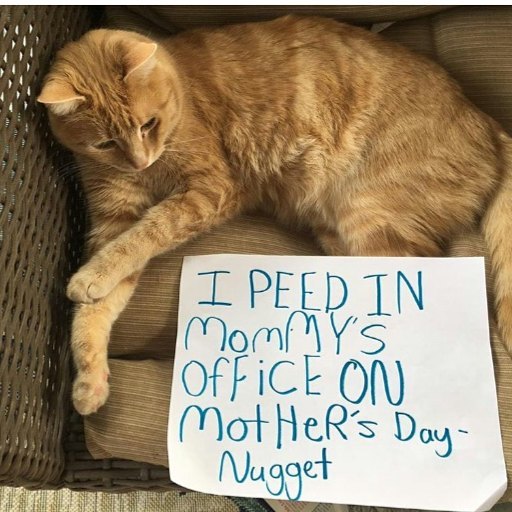 I PEED IN
MOMMY'S
OFFICE ON
MOTHER'S Day-
Nugget